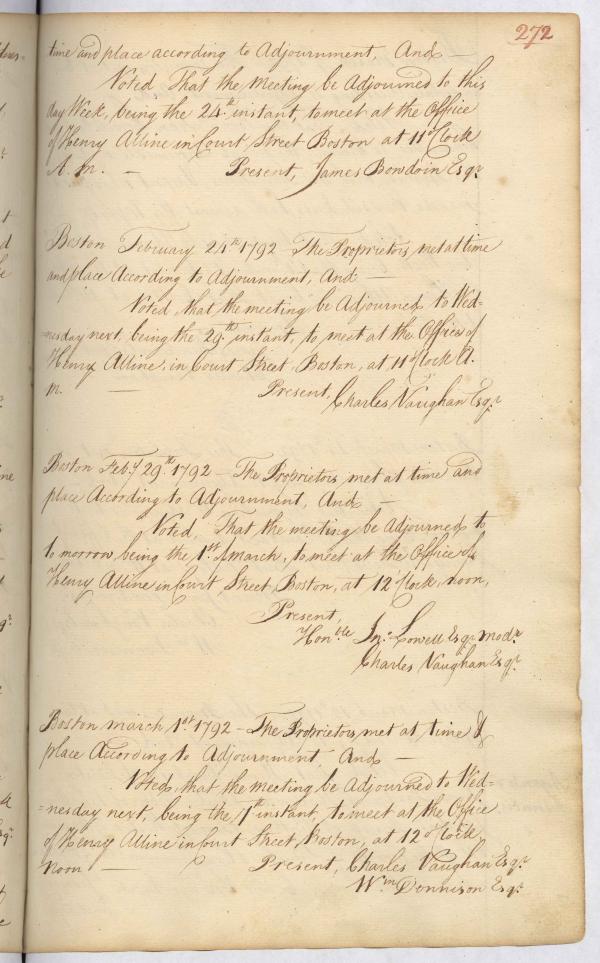 272
time and place according to Adjournment, And —
Voted That the Meeting be Adjourned to this
day Week, being the 24th instant, to meet at the Office
of Henry Alline in Court Street Boston at 11 oClock
A. M. — Present, James Bowdoin Esqr
Boston February 24th 1792 The Proprietors met at time
and place According to Adjournment, And —
Voted, that the meeting be Adjourned to Wed-
=nesday next, being the 29th instant, to meet at the Office of
Henry Alline, in Court Street, Boston, at 11 oClock A.
M. — Present, Charles Vaughan Esqr
Boston Feby 29th 1792 – The Proprietors met at time and
place According to Adjournment, And —
Voted, That the meeting be Adjourned to
to morrow, being the 1st of March, to meet at the Office of
Henry Alline in Court Street, Boston, at 12 oClock, noon,
Present,
Honble Jno Lowell Esqr modr
Charles Vaughan Esqr
Boston march 1st 1792 – The Proprietors met at time &
place According to Adjournment, And —
Voted, that the meeting be Adjourned to Wed-
=nesday next, being the 7th instant, to meet at the Office
of Henry Alline in Court Street, Boston, at 12 oClock,
Noon — Present, Charles Vaughan Esqr
Wm Dennison Esqr